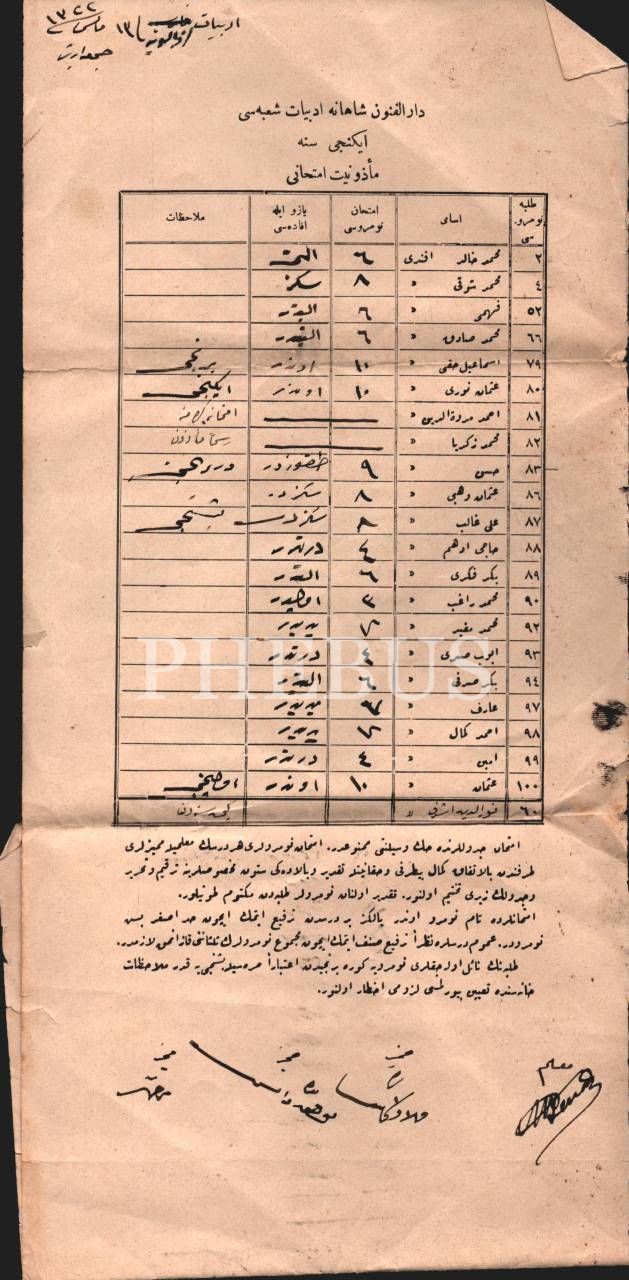 ادبیات
١٣٢٢
دار الفنون شاهانه ادبیات شعبه‌سی
ایکنجی سنه
مأذونیت امتحانی
طلبه نومرو‌سی اسامی امتحان نومروسی یازو ایله افاده‌سی ملاحظات
٢ محمد خالد افندی ٦ التی
٤ محمد شوقی " ٨ سکز
٥٢ فهمی " ٦ التیدر
٦٦ محمد صادق " ٦ التیدر
٧٩ اسماعیل حقی " ١٠ اوندر برنجی
٨٠ عثمان نوری " ١٠ اوندر ایکنجی
٨١ احمد مروة الدین "
٨٢ محمد زکریا "
٨٣ حسن " ٩ طقوزدر دردنجی
٨٦ عثمان وهبی " ٨ سکزدر
٨٧ علی غالب " ٨ سکزدر بشنجی
٨٨ حاجی ادهم " ٤ درتدر
٨٩ بکر فکری " ٦ التیدر
٩٠ محمد راغب " ٣ اوچدر
٩٢ محمد مفید " ٧ یدیدر
٩٣ ایوب صبری " ٤ درتدر
٩٤ بکر صدقی " ٦ التیدر
٩٧ عارف " ٧ یدیدر
٩٨ احمد کمال " ٧ یدیدر
٩٩ امین " ٤ درتدر
١٠٠ عثمان " ١٠ اوندر اوچنجی
٦٠ نورالدین اشرفی
PHEBUS
امتحان جدوللرنده حك و سیلنتی ممنوعدر. امتحان نومرولری هر درسك معلمیله ممیزلری
طرفندن بالاتفاق کمال بیطرفی و حقانیتله تقدیر و بالاده‌کی ستون مخصوصلرینه ترقیم و تحریر
و جدولك زیری تختیم اولنور. تقدیر اولنان نومرولر طلبه‌دن مکتوم طوتیلور.
امتحانلرده تام نومرو اوندر یالکز بر درسدن ترفیع ایتمك ایچون حد اصغر بش
نومرودر. عموم درسلره نظراً ترفیع صنف ایتمك ایچون مجموع نومرولرك ثلثانی قازانمق لازمدر.
طلبه‌نك نائل اوله‌جقلری نومرویه کوره برنجیدن اعتباراً صره‌سیله بشنجی‌یه قدر ملاحظات
خانه‌سنده تعیین بیورلمسی لزومی اخطار اولنور.
معلم ممیز ممیز ممیز